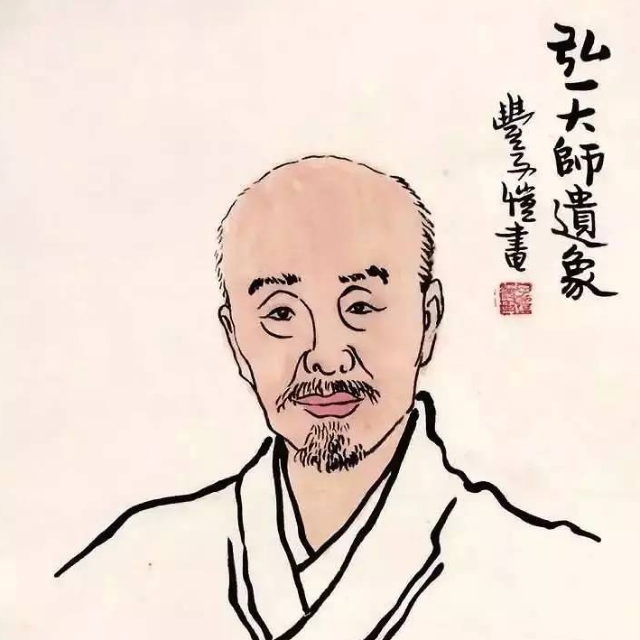 弘一大師遺象
豐子愷畫